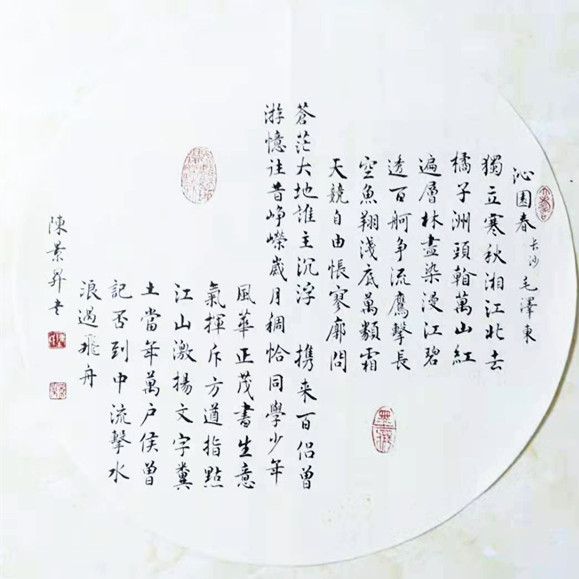 沁園春 长沙 毛澤東
獨立寒秋湘江北去
橘子洲頭翰萬山紅
遍層林盡染漫江碧
透百舸争流鷹擊長
空魚翔淺底萬類霜
天競自由悵寥廓問
蒼茫大地誰主沉浮 携来百侣曾
游憶往昔崢嶸歲月稠恰同學少年
風華正茂書生意
氣揮斥方遒指點
江山激揚文字糞
土當年萬户侯曾
記否到中流擊水
浪遏飛舟
陳景昇书